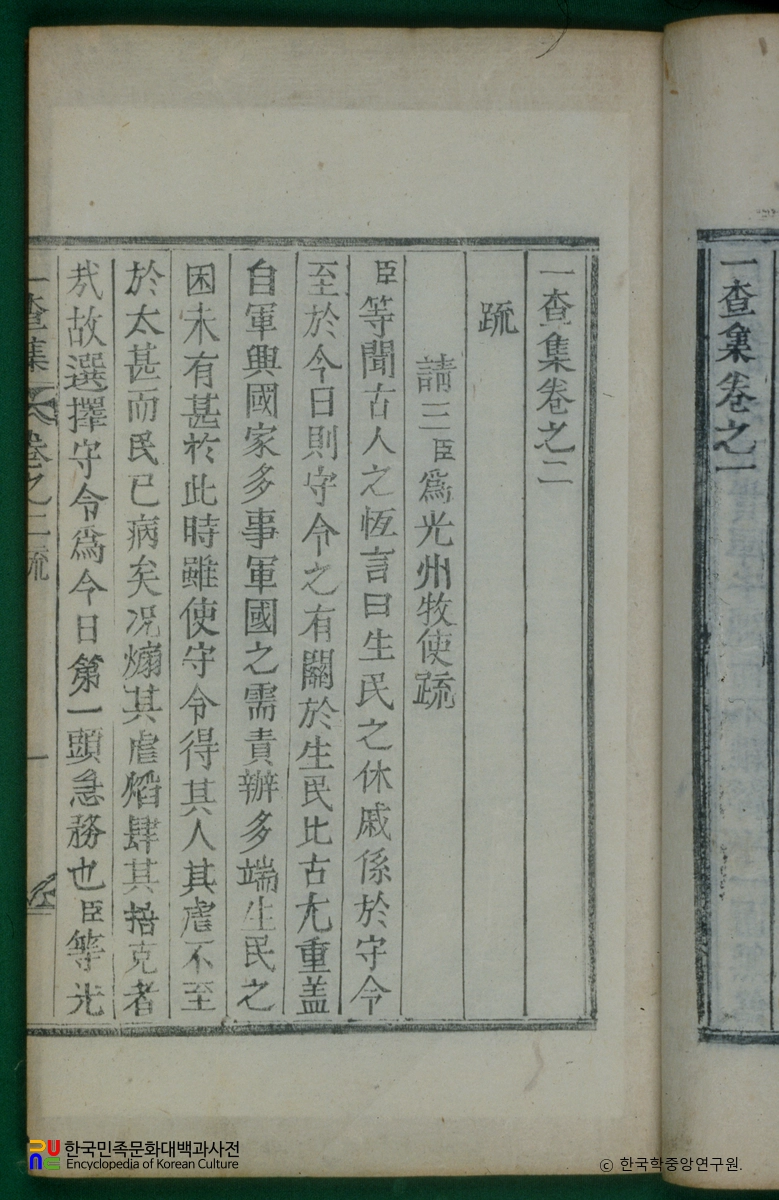 一查集卷之一
一查集卷之二
疏
請三臣爲光州牧使疏
臣等聞古人之恆言曰生民之休戚係於守令
至於今日則守令之有關於生民比古尤重盖
自軍興國家多事軍國之需責辦多端生民之
困未有甚於此時雖使守令得其人其虐不至
於太甚而民已病矣况煽其虐焰肆其掊克者
㢤故選擇守令爲今日第一頭急務也臣等光
一查集 卷之二 疏 一
한국민족문화대백과사전
Encyclopedia of Korean Culture
© 한국학중앙연구원.